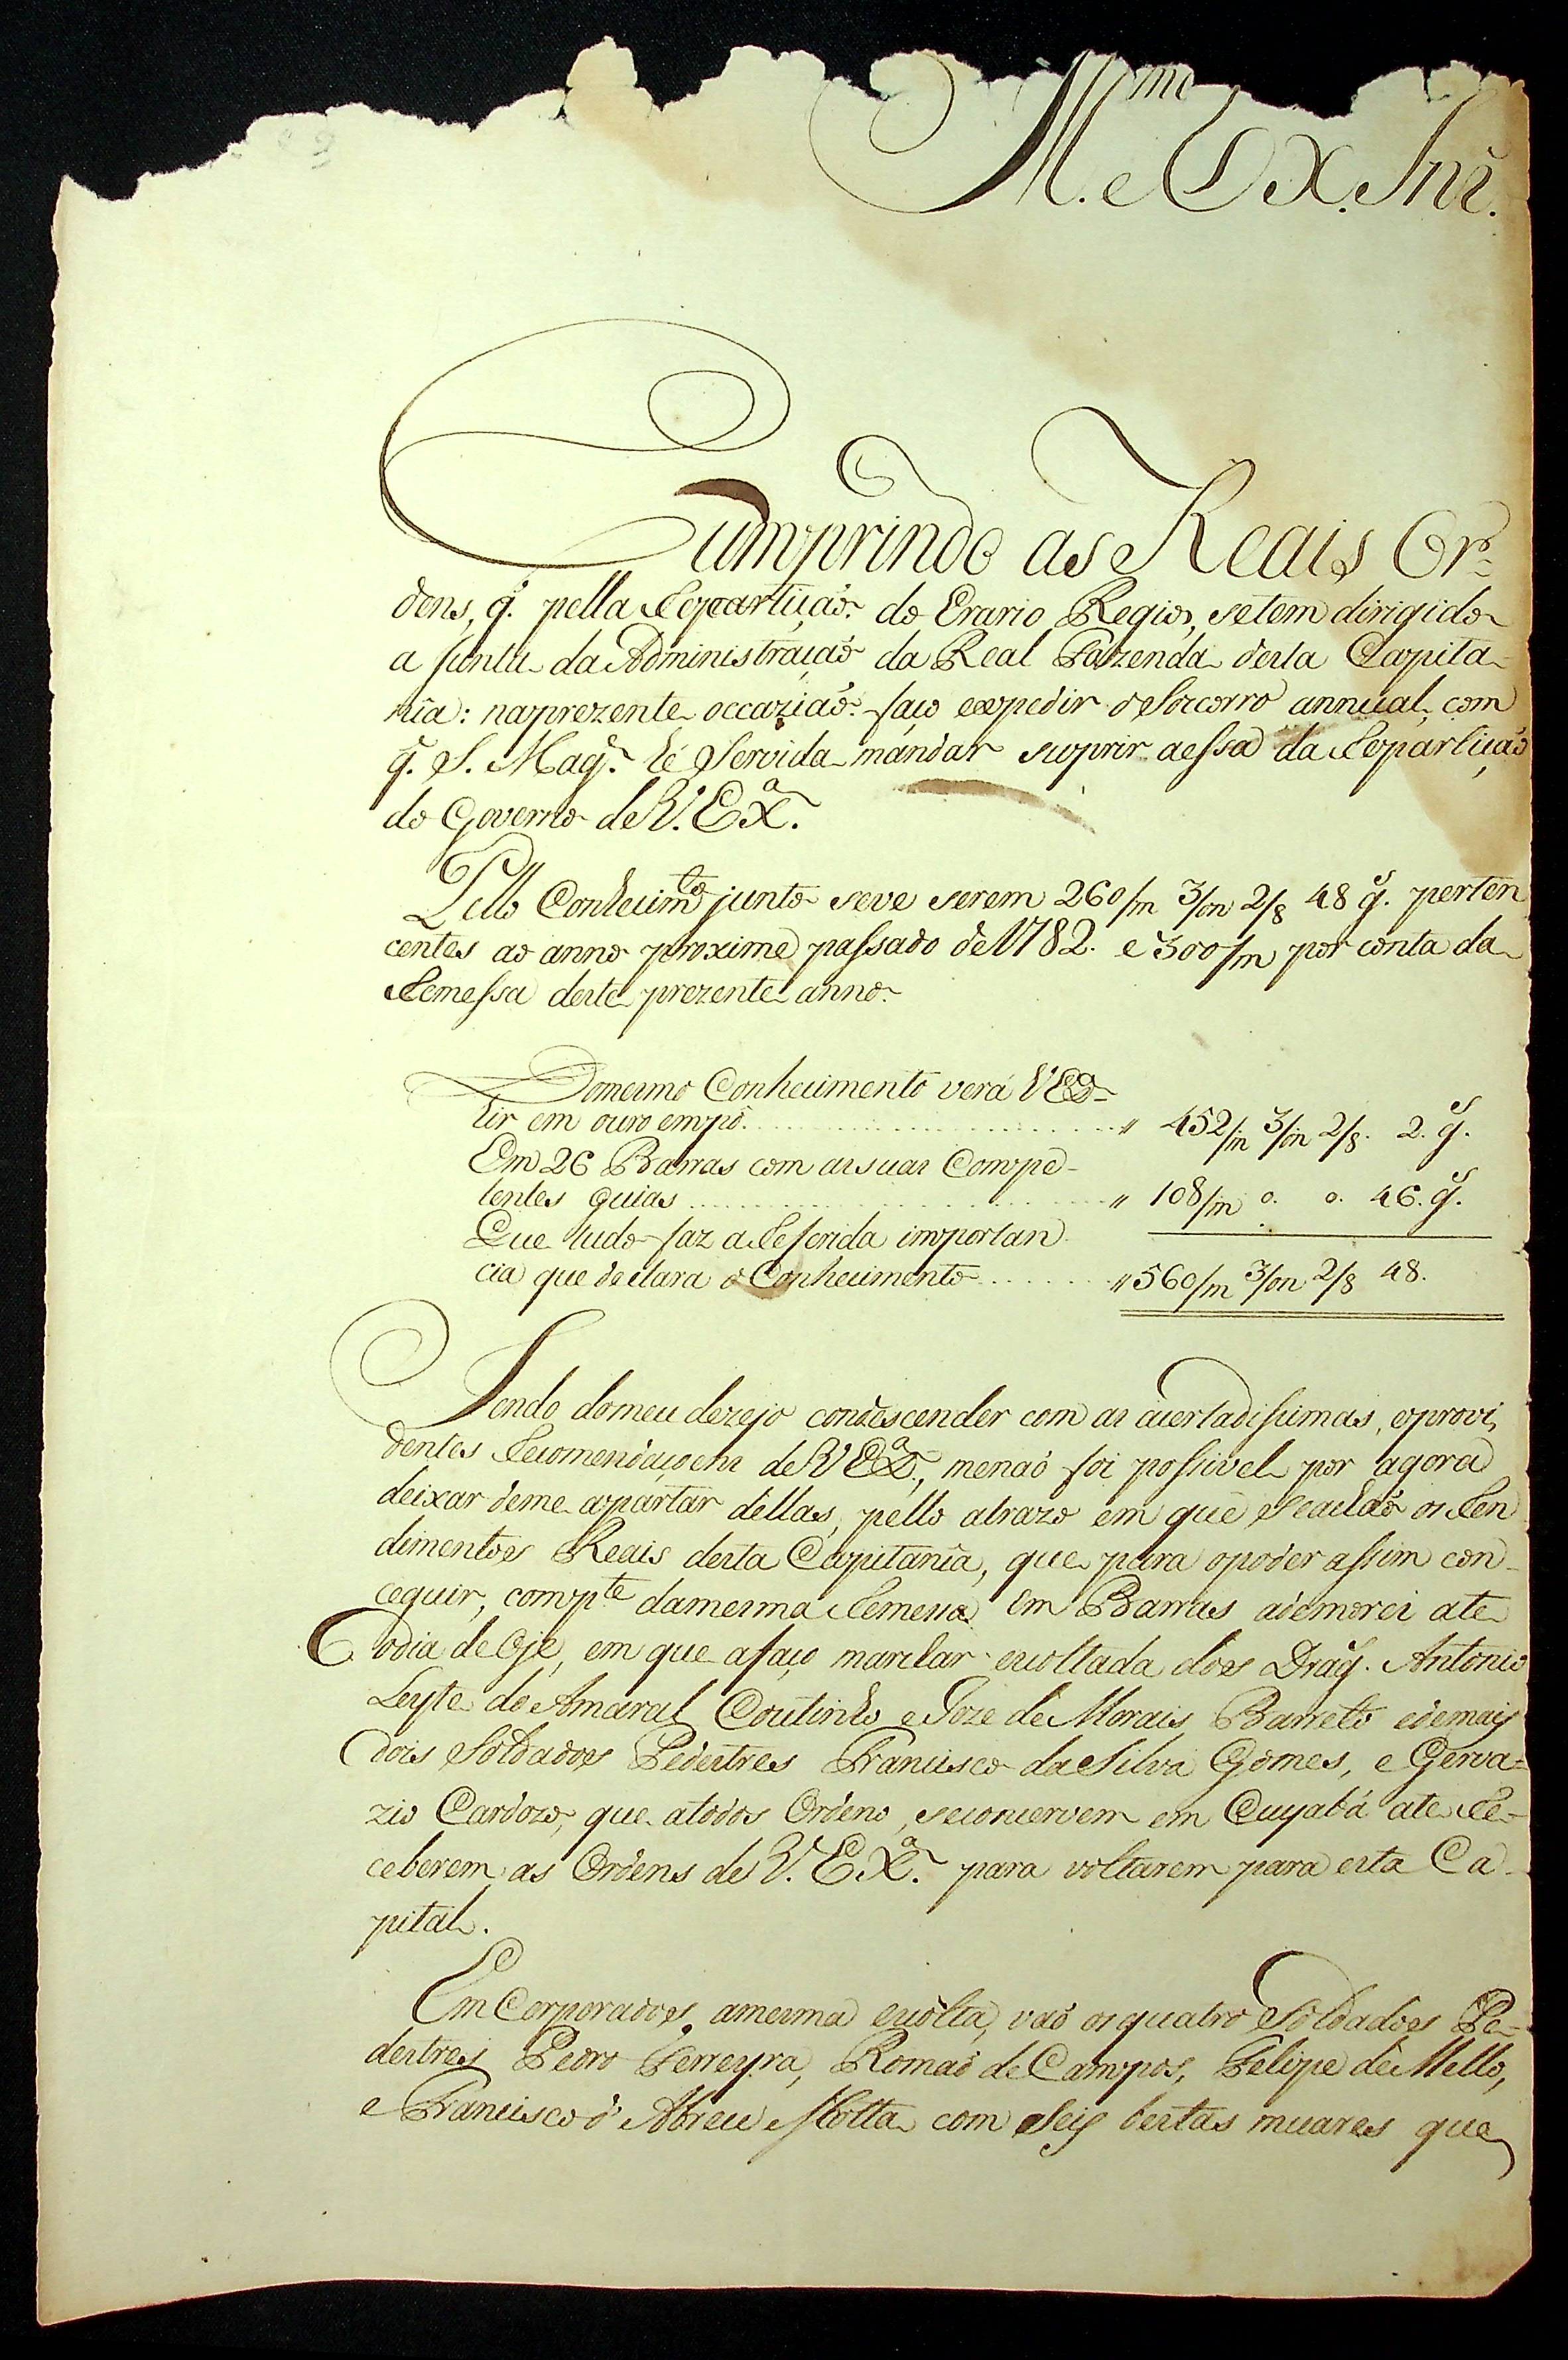 Ill.mo e Ex. Snr.
Cumprindo as Reais Or-
dens, q. pella Repartiçaõ do Erario Regio, setem dirigido
a Junta da Administraçaõ da Real Fazenda desta Capita-
nîa: naprezente occaziaõ faço expedir o Socorro annual, com
q. S. Mag.e hé Servida mandar suprir aessa da Repartiçaõ
do Governo de V. Ex.a
Pello Conhecim.to junto seve serem 260/m 3/on 2/8 48 g.s perten
centes ao anno proximo passado de 1782. e 300/m por conta da
Remessa deste prezente anno.
Domesmo Conhecimento verá V Ex.a
hir em ouro empó. " 452/m 3/on 2/8. 2. g.s
Em 26 Barras com assuas Compe-
tentes guias " 108/m o. o. 46. g.s
Que tudo faz a Referida importan
cia que declara o Conhecimento " 560/m 3/on 2/8 48.
Sendo domeu dezejo condescender com as acertadissimas, eprovi
dentes Recomendaçoens de V Ex.a, menaõ foi possivel por agora
deixar deme apartar dellas, pello atrazo em que seachaõ os Ren
dimentos Reais desta Capitanîa, que para opoder assim con-
ceguir, comp.te damesma Remessa em Barras ademorei ate
odia de Oje, em que afaço marchar escoltada dos Drag.s Antonio
Leyte do Amaral Coutinho e Joze de Morais Barreto edemais
dois Soldados Pedestres Francisco da Silva Gomes, e Gerva=
zio Cardozo, que atodos Ordeno, seconservem em Cuyabá ate Re-
ceberem as Ordens de V. Ex.a para voltarem para esta Ca-
pital.
EmCorporados, amesma escolta, vaõ osquatro Soldados Pe-
destres Pedro Ferreyra, Romaõ de Campos, Felipe de Mello,
e Francisco d' Abreu Motta com Seis bestas muares que